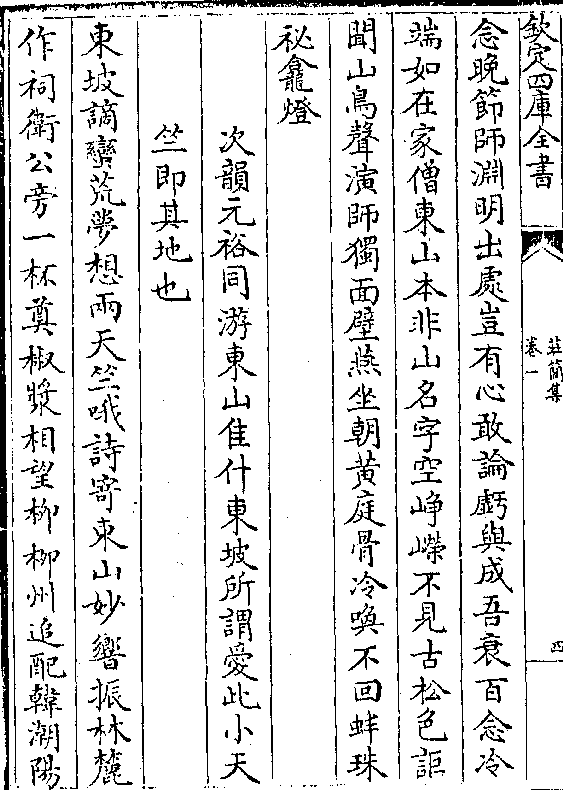 欽定四庫全書
莊簡集
卷一
四
念晚節師淵明出處豈有心敢論虧與成吾衰百念冷
端如在家僧東山本非山名字空崢嶸不見古松色詎
聞山鳥聲演師獨面壁燕坐朝黃庭骨冷喚不回蚌珠
祕龕燈
次韻元裕同游東山佳什東坡所謂愛此小天
竺即其地也
東坡謫蠻荒夢想兩天竺哦詩寄東山妙響振林麓
作祠衛公旁一杯奠椒漿相望柳柳州追配韓潮陽